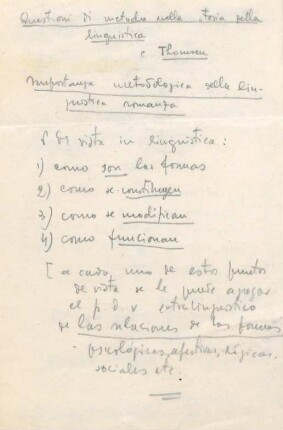 Questioni di metodo nella storia della
linguistica
e Thomsen
Importanza metodologica della lin-
guistica romanza
P. de vista in linguistica :
1) como son las formas
2) como se constituyen
3) como se modifican
4) como funcionan
[ a cada uno de estos puntos
de vista se le puede agregar
el p. d. v. extralinguistico
de las relaciones de las formas
- psicológicas, afectivas, lógicas,
sociales etc.